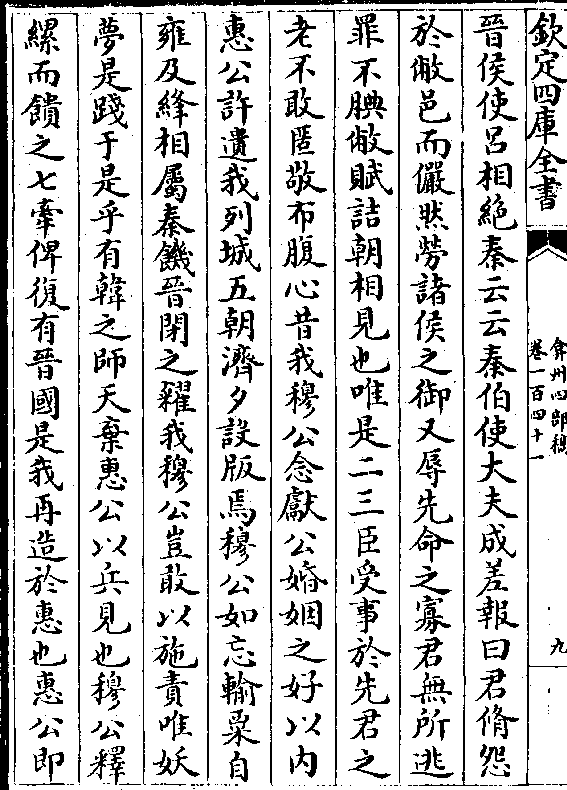 欽定四庫全書
弇州四部稿
卷一百四十一
九
晉侯使吕相絶秦云云秦伯使大夫成差報曰君脩怨
於敝邑而儼然勞諸侯之御又辱先命之寡君無所逃
罪不腆敝賦詰朝相見也唯是二三臣受事於先君之
老不敢匿敬布腹心昔我穆公念獻公婚姻之好以内
惠公許遺我列城五朝濟夕設版焉穆公如忘輸粟自
雍及絳相屬秦饑晉閉之糴我穆公豈敢以施責唯妖
夢是踐于是乎有韓之師天棄惠公以兵見也穆公釋
縲而饋之七牢俾復有晉國是我再造於惠也惠公即